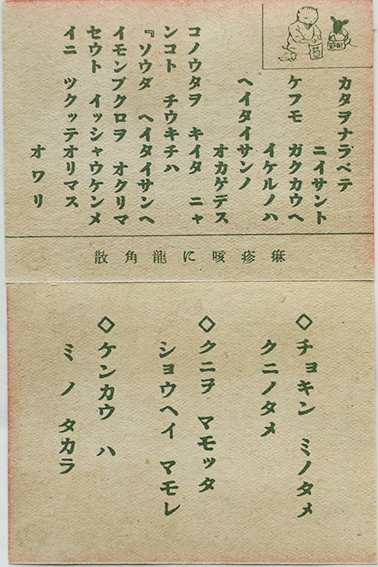 カタヲナラベテ
ニイサント
ケフモ ガクカウヘ
イケルノハ
ヘイタイサンノ
オカゲデス
コノウタヲ キイタ ニャ
ンコト チウキチハ
『ソウダ ヘイタイサンヘ
イモンブクロヲ オクリマ
セウト イッシャウケンメ
イニ ツクッテオリマス
オワリ
痲疹咳に龍角散
◇チョキン ミノタメ
クニノタメ
◇クニヲ マモッタ
ショウヘイ マモレ
◇ケンカウ ハ
ミ ノ タカラ